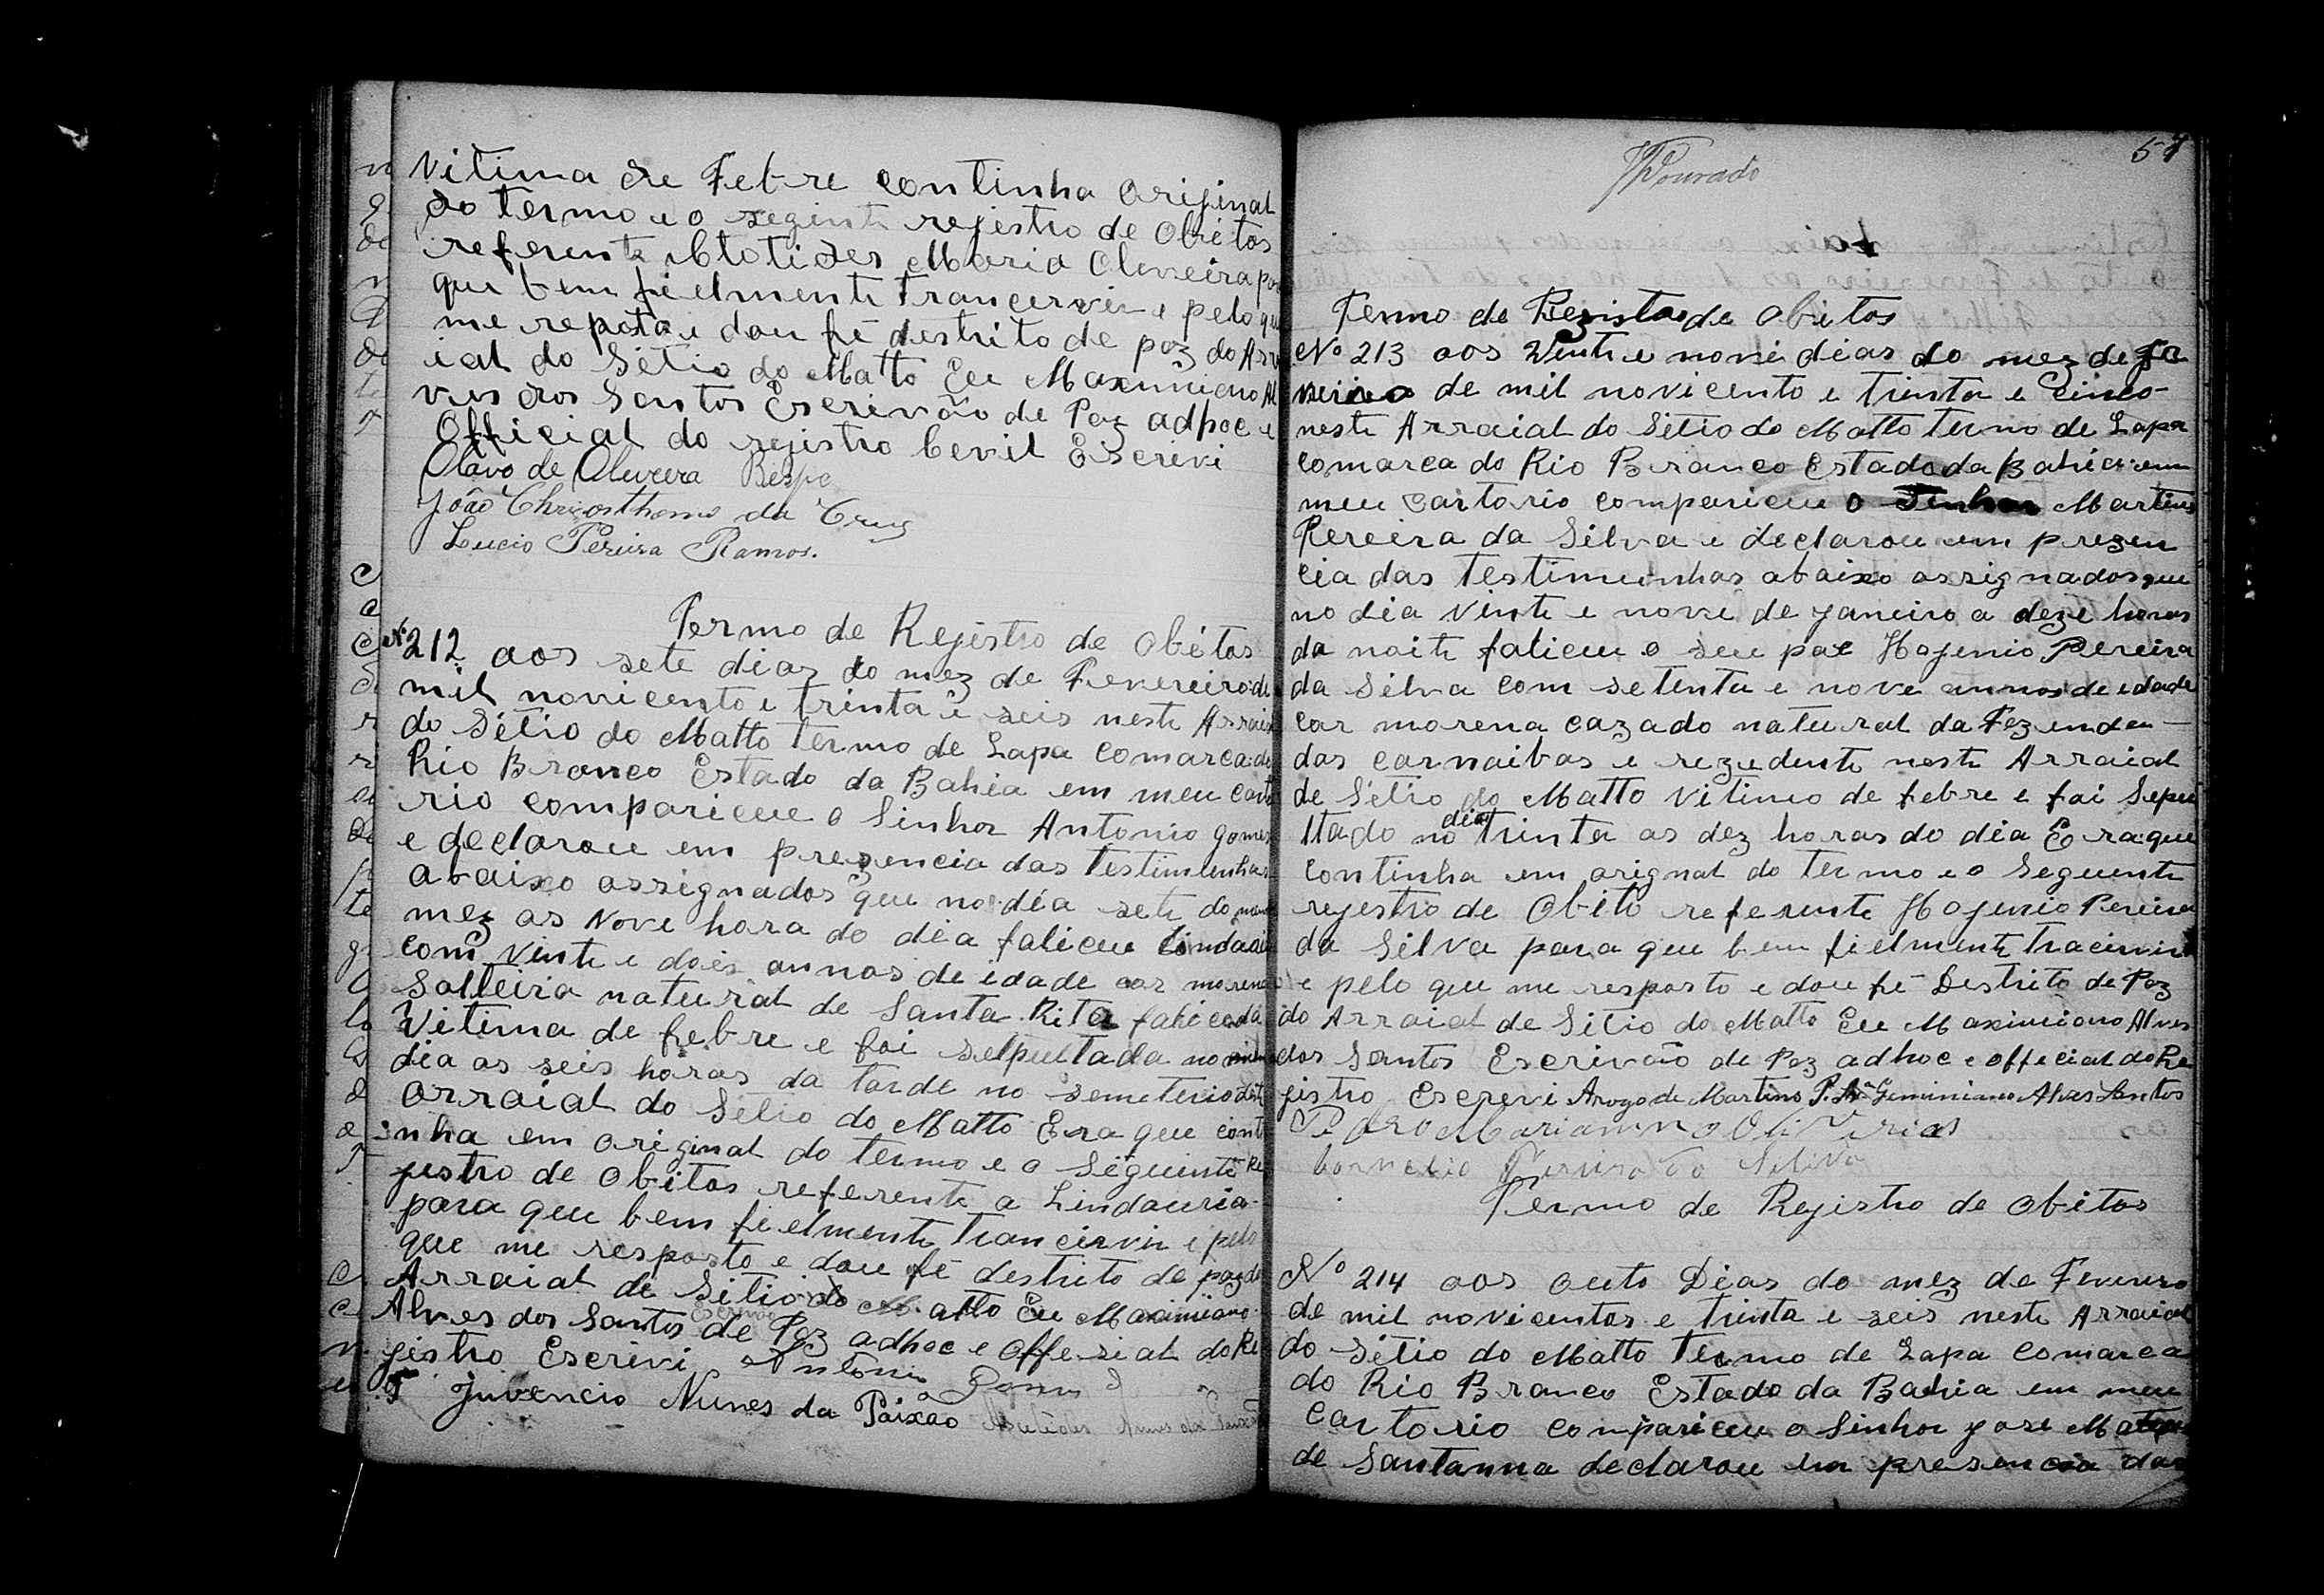 Vitima de Febre continha original
do termo e o seginte rejestro de Obitos
referente Clotides Maria Oliveira par
que bem fielmente trancervir e pelo qu
me repota e dou fé destrito de paz do Arr
ial do Sitio do Matto Eu Maximiano Al
ves dos Santos Escrivão de Paz adhoc e
Official do rejistro Cevil Escrivi
Olavo de Oliveira Bispo
João Chrisosthomo da Cruz
Lucio Pereira Ramos.
Termo de Rejistro de Obitos
Nº 212 aos sete dias do mez de Fevereiro de
mil novicento e trinta e seis neste Arraial
do Sitio do Matto termo de Lapa Comarca do
Rio Branco Estado da Bahia em meu carto
rio compariceu o Sinhor Antonio gomes
e declarou em prezencia das testimunhas
abaixo assignados que no dia sete do mesmo
mez as nove hora do dia faliceu
com vinte e dois annos de idade cor morena
Solteira natural de Santa Rita
Vitima de febre e foi selpultada no mesmo
dia as seis horas da tarde no semeterio deste
arraial do Sitio do Matto Era que conti
nha em original do termo e o Seguinte Re
jestro de obitos referente a Lindauria
para que bem fielmente trancirvir e pelo
que me resposto e dou fé destrito de paz do
Arraial de Sitio do Matto Eu Maximiano
Alves dos Santos Escrivão de Paz adhoc e offesial do Re
jistro Escrivi Antonio Gomes
Juvencio Nunes da Paixão
Nunes da Paixão
57
JDourado
Termo de Rezistro de Obitos
Nº 213 aos Vente e nove dias do mez de ja
neiro de mil novicento e trinta e cinco
neste Arraial do Sitio do Matto termo de Lapa
comarca do Rio Branco Estado da Bahia em
meu cartorio compariceu o Senhor Martins
Pereira da Silva e declarou em prezen
cia das testimunhas abaixo assignados que
no dia vinte e nove de janeiro a deze horas
da noite faliceu o seu pae Hogenio Pereira
da Silva com setenta e nove annos de edade
cor morena cazado natural da Fazenda
das carnaibas e rezedente neste Arraial
de Sitio do Matto Vitimo de febre e foi Sepu
ltado no dia trinta as dez horas do dia Era que
continha em orignal do termo e o Seguente
rejestro de Obito referente Hogenio Pereira
da Silva para que bem fielmente tracirvir
e pelo que me resposto e dou fé Destrito de Paz
do Arraial de Sitio do Matto Eu Maximiano Alves
dos Santos Escrivão de Paz adhoc e official do Re
jistro Escrevi Arogo de Martins P. Sª Geminiano Alves Santos
Pedro Marianno
Cornelio Pereira da Silva
Termo de Rejistro de obitos
Nº 214 aos outo Dias do mez de Fevereiro
de mil novicentos e trinta e seis neste Arraial
do Sitio do Matto Termo de Lapa comarca
do Rio Branco Estado da Bahia em meu
Cartorio compariceu o Sinhor jose
de Santanna declarou em presencia das